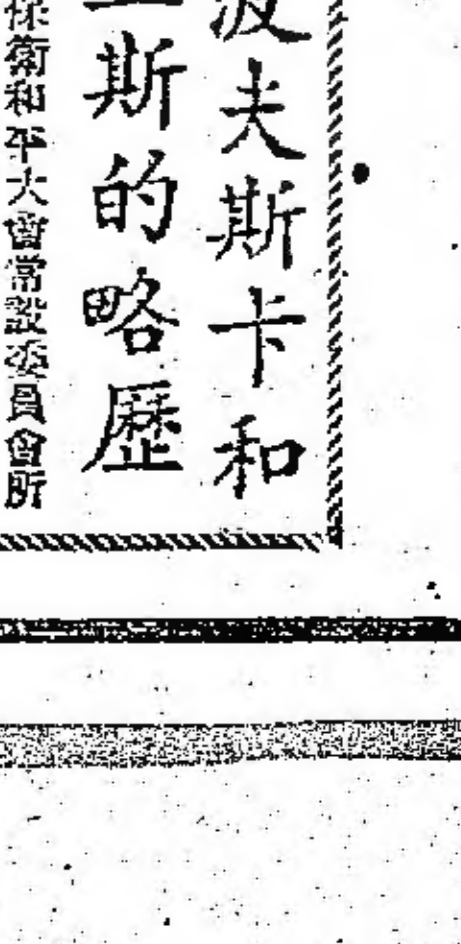 波夫斯卡和
斯的略歷
保衛和平大會常設委員會所